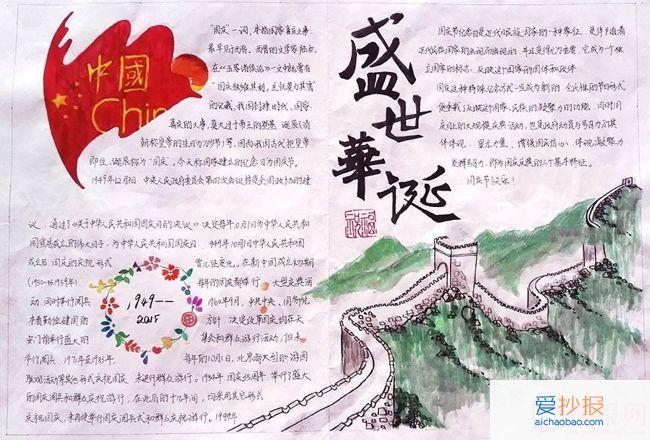 中國
China
"国庆"一词,本指国家喜庆之事,
最早见于西晋。西晋的文学家陆机
在《五等诸侯论》一文中就曾有
"国庆独飨其利,主忧莫与其害"
的记载,我国封建时代、国家
喜庆的大事,莫大过于帝王的登基、诞辰(清
朝称皇帝的生日为万岁节)等,因而我国古代把皇帝
即位、诞辰称为"国庆"。今天称国家建立的纪念日为国庆节。
1949年12月3日,中央人民政府委员会第四次会议接受全国政协的建
议,通过了《关于中华人民共和国国庆日的决议》,决定每年10月1日为中华人民共和
国宣告成立的伟大日子,为中华人民共和国国庆日。1949年10月1日中华人民共和国
成立后,国庆的庆祝形式
曾几经变化。在新中国成立初期
(1950-1959年)
每年的国庆都举行
大型庆典活
动,同时举行阅兵
1960年9月,中共中央、国务院
本着勤俭建国的
方针,决定改革国庆
1949——
2015
集会和群众游行活动,但未
举行阅兵。1971年至1983年
每年的10月1日,北京都以大型的游园
联欢活动等其他形式庆祝国庆,未进行群众游行。1984年,国庆35周年,举行了盛大
的国庆阅兵和群众庆祝游行。在此后的十几年间,均采用其它形式
庆祝国庆,未再举行国庆阅兵式和群众庆祝游行。1999年
盛世華诞
国庆节纪念日是近代民族国家的一种特征,是伴随着
近代民族国家的出现而出现的,并且变得尤为重要。它成为一个独
立国家的标志,反映这个国家的国体和政体。
国庆这种特殊纪念方式一旦成为新的、全民性的节日形式
便承载了反映这个国家、民族的凝聚力的功能。同时国
庆日上的大规模庆典活动,也是政府动员与号召力的具
体体现。显示力量、增强国民信心、体现凝聚力
发挥号召力,即为国庆庆典的三个基本特征。
国庆节快乐!
爱抄报
aichaobao.com